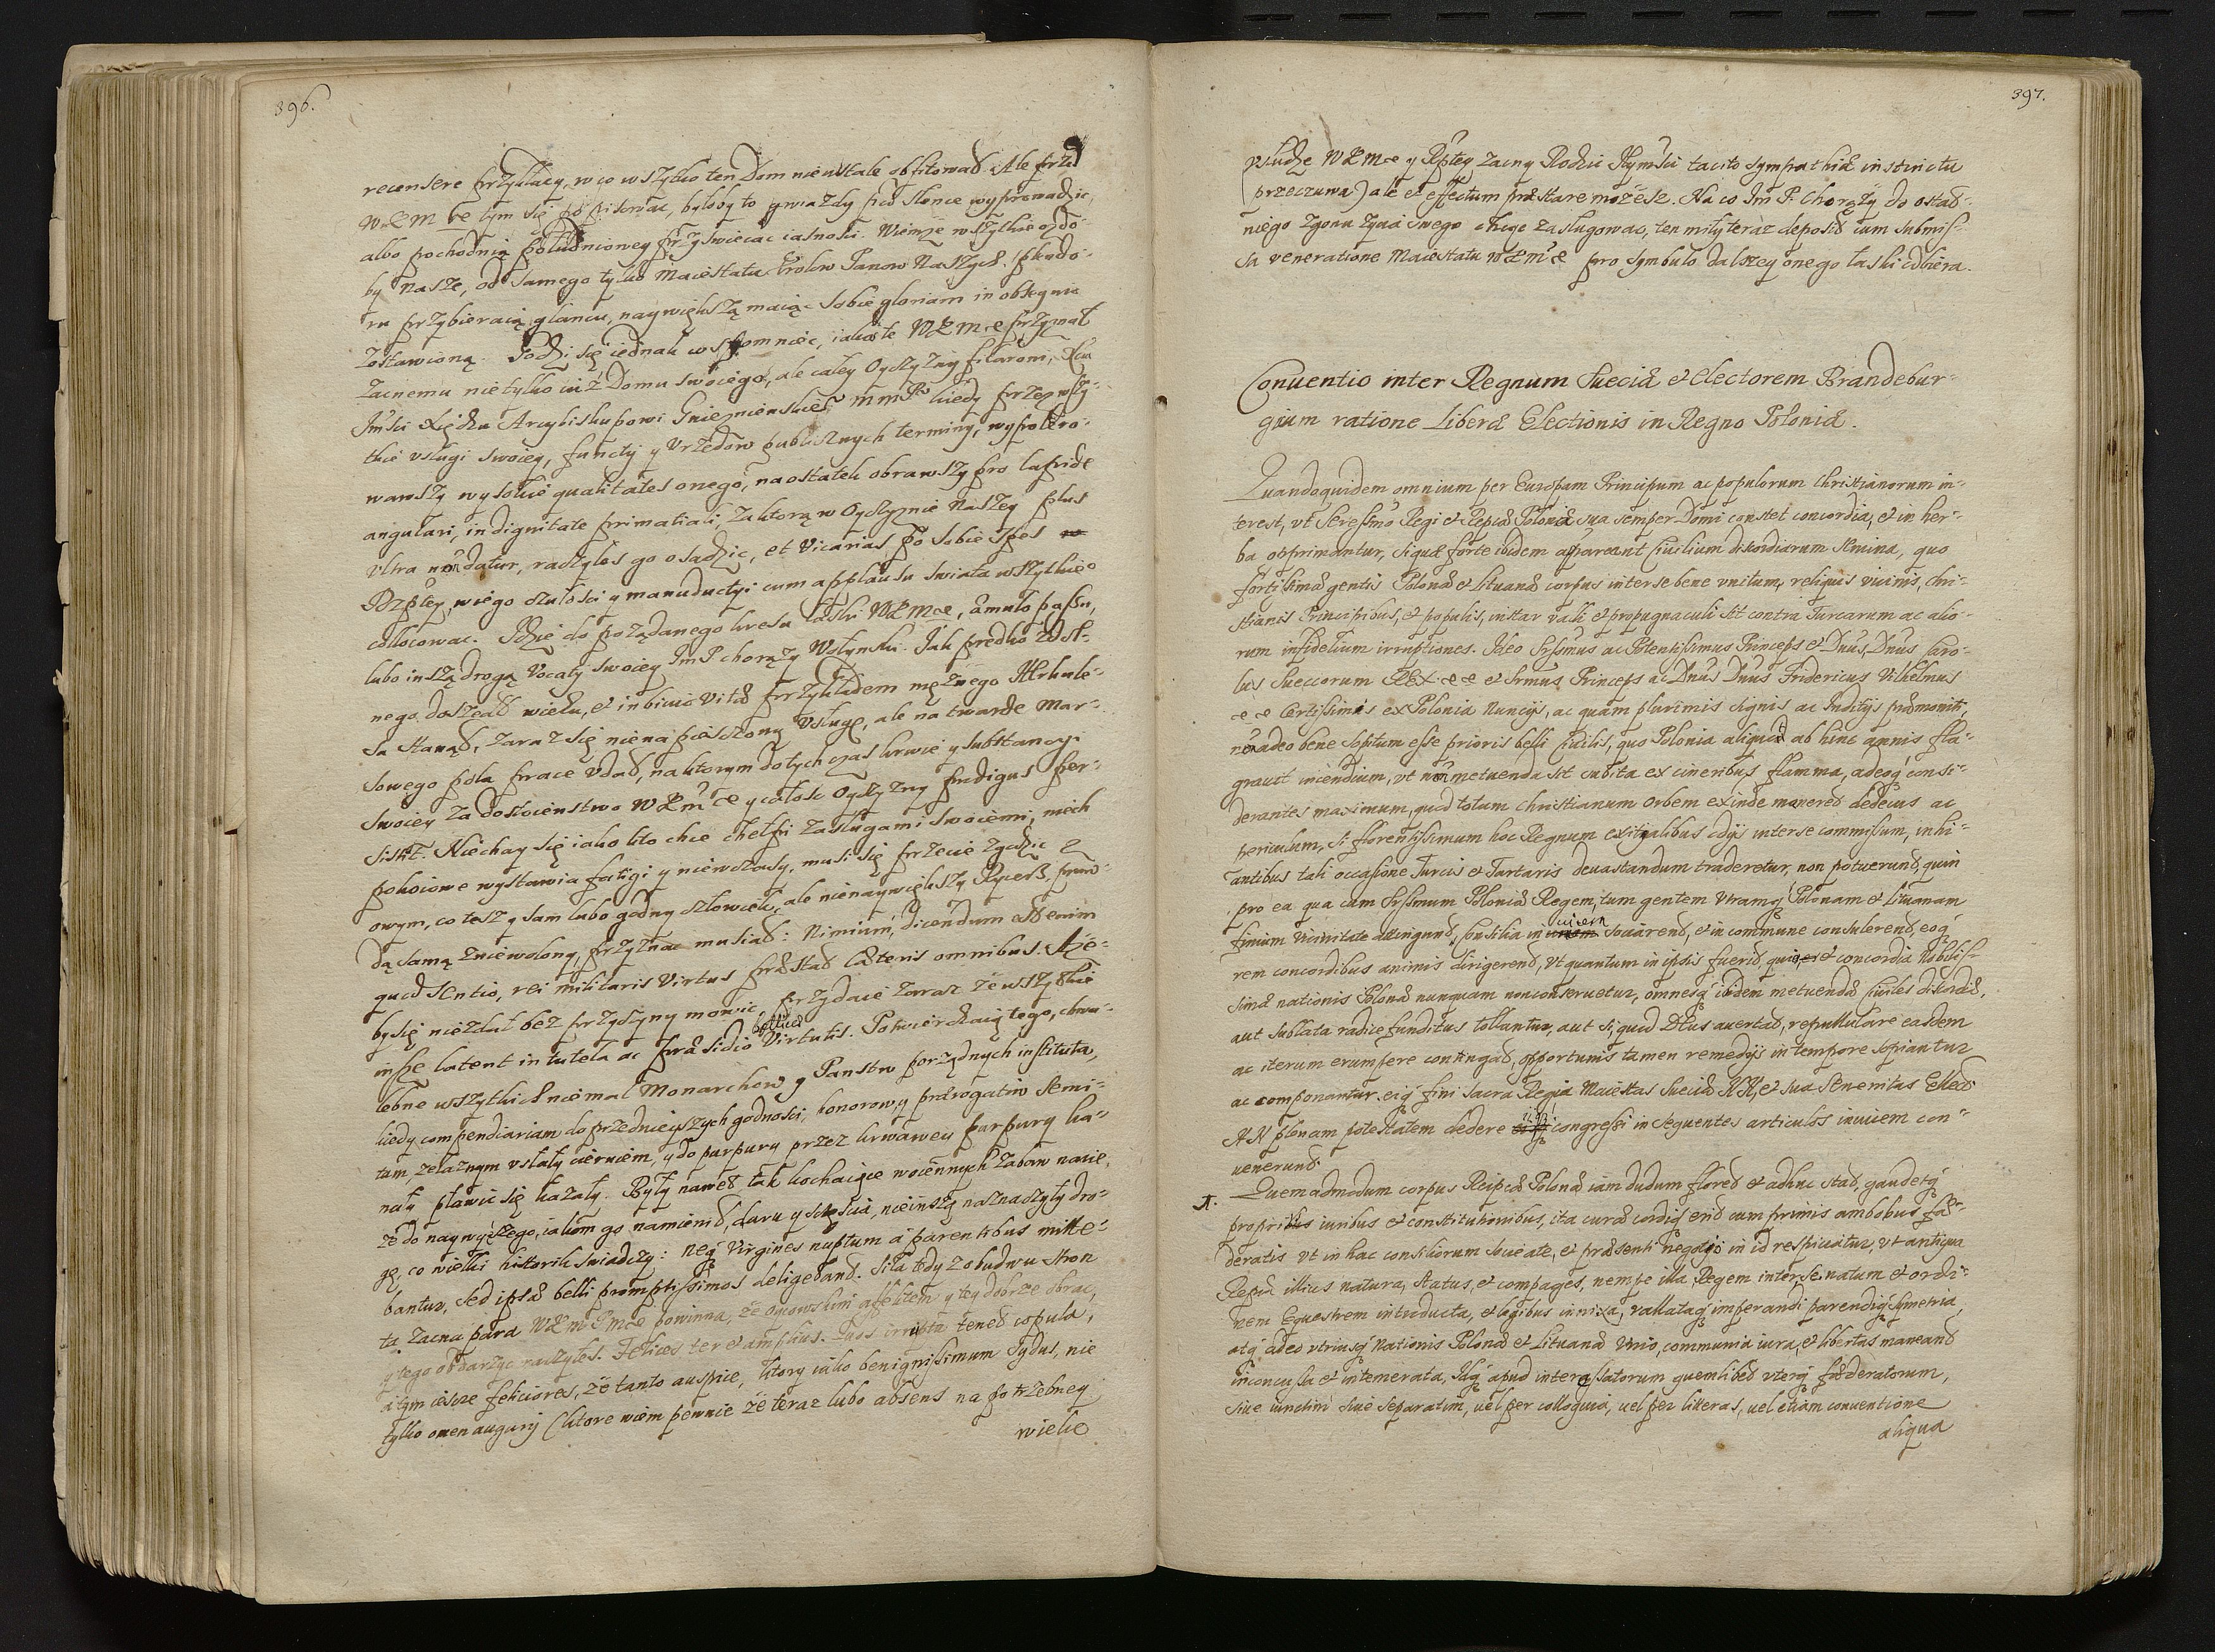 396.
recensere przykłady, w co wszytko ten Dom nieustale obfitował. Ale przed
WKM. tym się popisować, byłoby to gwiazdy pod słonce wyprowadzic,
albo pochodnią południowey przyswiecac iasnosci. Wiemże wszytkie ozdo-
by Nasze, od samego tylko Maiestatu Krolow Panow Naszych
przybieraią glancu, naywiększą maiąc sobie gloriam in obsequio
zostawioną. Godzi się iednak wspomniec, iakoste WKMc przyznał
Zacnemu nie tylko iuż Domu swoiego, ale całey Oyczyzny filarowi,
Imsci Xiędzu Arcybiskupowi Gnieznienskie kiedy przez wszy-
tkie usługi swoiey, functy y Urzędow publicznych terminy, wypolero-
wawszy wysokie qualitates onego, na ostatek obrawszy pro lapide
angulari, in dignitate primatiali, za ktorą w Oyczyznie Naszey plus
ultra non datur, raczyłes go osadzic, et Vicarias po sobie spes
Rzpltey, w iego czułosci y manuductyi cum applausu swiata wszytkiego
collocowac. Idzie do pożądanego kresu łaski WKMce, æmulo passu,
lubo inszą drogą Vocaty swoiey ImP chorąży Wołynski. Jak prędko
nego doszedł wieku, et in bivio vitæ przykładem mężnego Herkule-
sa stanął, zaraz się nie na pieszczoną usługę, ale na twarde Mar-
sowego pola prace udał, na ktorym dotychczas krwie y substancyi
swoiey za dostoienstwo WKMce y całosc Oyczyzny prodigus per-
sistit. Niechay się iako kto chce chełpi zasługami swoiemi, niech
pokoiowe wystawia fatigi y niewczasy, musi się przecie zgodzic z
owym, co tesz y sam lubo godny człowiek, ale nie naywiększy Rycerz, praw-
dą samą zniewolony, przyznac musiał: Nimium, dicendum est enim
quod sentio, rei militaris virtus præstat cæteris omnibus. Aże-
by się nie zdał bez przyczyny mowic, przydaie zaraz że wszytkie
inße latent in tutela ac præsidio bellicæ Virtutis. Potwierdzaią tego, chwa-
lebne wszytkich niemal Monarchow y Panstw porządnych instituta,
kiedy compendiariam do przednieyszych godnosci, honorow, y prærogatiw semi-
tam, żelaznym usłały cierniem, y do purpury przez krwawey purpurę ka-
nały pławic się kazały. Były nawet tak kochaiące woiennych zabaw nacie,
że do naywyższego, iakom go namienił, daru y szczęscia, nie inszą naznaczyły dro-
gę, co wielki historik swiadczy: neq Virgines nuptum à parentibus mitte-
bantur, sed ipsæ belli promptissimos deligebant. Siła tedy z obudwu stron
ta zacna para WKMPMce powinna, że oycowskim affektem y tey dobrze obrac,
y tego obdarzyc raczyłes. Felices ter et amplius. Quos irrupta tenet copula,
a tym iescze feliciores, że tanto auspice, ktory iako benignissimum Sydus, nie
tylko omen augurij (ktore wiem pewnie że teraz lubo absens na potrzebney
wielce
397.
usłudze WKMce y Rzptey zacny Rodzic Rzymski tacito sympathiæ instinctu
przeczuwa) ale et effectum præstare możesz. Na co Im P. Chorąży do ostat-
niego zgonu życia swego chcąc zasługowac, ten miły teraz deposit cum submis-
sa veneratione Maiestatu WKMce pro symbulo dalszey onego łaski odbiera.
Conventio inter Regnum Sueciæ et Electorem Brandebur-
gium ratione Liberæ Electionis in Regno Poloniæ.
Quandoquidem omnium per Europam Principum ac populorum Christianorum in-
terest, ut Serессmo Regi et Reipcæ Poloniæ sua semper Domi constet concordia, et in her-
ba opprimantur, siquæ forte ibidem appareant Civilium discordiarum semina, quo
fortissimæ gentis Polonæ et Lituanæ corpus inter se bene unitum, reliquis vicinis, Chri-
stianis Principibus, et populis, instar valli et propugnaculi sit contra Turcarum ac alio-
rum infidelium irruptiones. Ideo Srssmus ac Potentissimus Princeps et Dnus, Dnus Caro-
lus Sueccorum REX ce ce et Srmus Princeps ac Dnus Dnus Fridericus Vilhelmus
ce ce Certissimis ex Polonia Nuncijs, ac quam plurimis signis ac Inditijs præmoniti,
non adeo bene sopitum esse prioris belli civilis, quo Polonia aliquot ab hinc annis fla-
gravit incendium, ut non metuenda sit subita ex cineribus flamma, adeoq consi-
derantes maximum, quod totum Christianum Orbem exinde maneret dedecus ac
periculum, si florentissimum hoc Regnum exitialibus odijs inter se commissum, inhi-
antibus tali occasione Turcis et Tartaris devastandum traderetur, non potuerunt, quin
pro ea qua cum Srssmum Poloniæ Regem, tum gentem utramq Polonam et Lituanam
finium vicinitate attingunt, Consilia in vicem sociarent, et in commune consulerent, eoq
rem concordibus animis dirigerent, ut quantum in ipsis fuerit, quies et concordia Nobilis-
simæ nationis Polonæ nunquam non conservetur, omnesq ibidem metuendæ civiles discordiæ,
aut sublata radice funditus tollantur, aut si, quod Deus avertat, repullulare easdem
ac iterum erumpere contingat, opportunis tamen remedijs in tempore sopiantur
ac componantur. eiq fini Sacra Regia Maiestas Sueciæ NN, et sua Serenitas Elect
NN plenam potestatem dedere iiq congressi in sequentes articulos invicem con-
venerunt.
1. Quemadmodum corpus Reipcæ Polonæ iam dudum floret et adhuc stat, gaudetq
proprijs iuribus et constitutionibus, ita curæ cordiq erit cum primis ambobus fæ-
deratis ut in hac consiliorum societate, et præsenti negotio in id respiciatur, ut antiqua
Reipcæ illius natura, status, et compages, nempe illa Regem inter Senatum et ordi-
nem Equestrem introducta, et legibus innixa, vallataq imperandi parendiq symetria,
atq adeo utriusq Nationis Polonæ et Lituanæ Unio, communia iura, et libertas maneant
inconcussa et intemerata, Itaq apud interessatorum quemlibet uterq fæderatorum,
sive iunctim sive separatim, vel per colloquia, vel per litteras, vel etiam conventione
aliqua